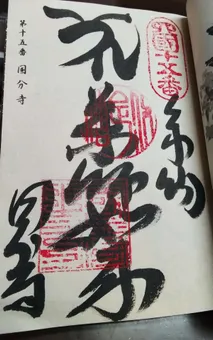 四國十五番
奉納
薬師如来
国分寺
第十五番 国分寺